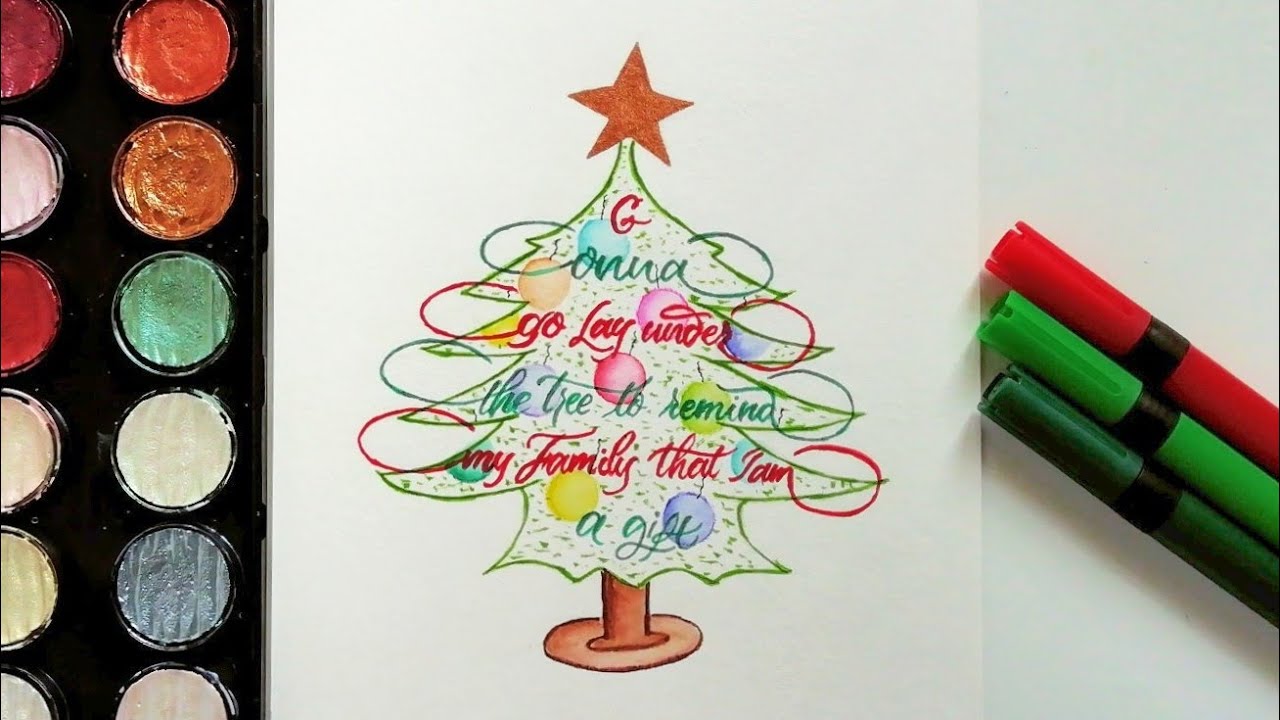 G
onna
go Lay under
the tree to remind
my Family that I am
a gift